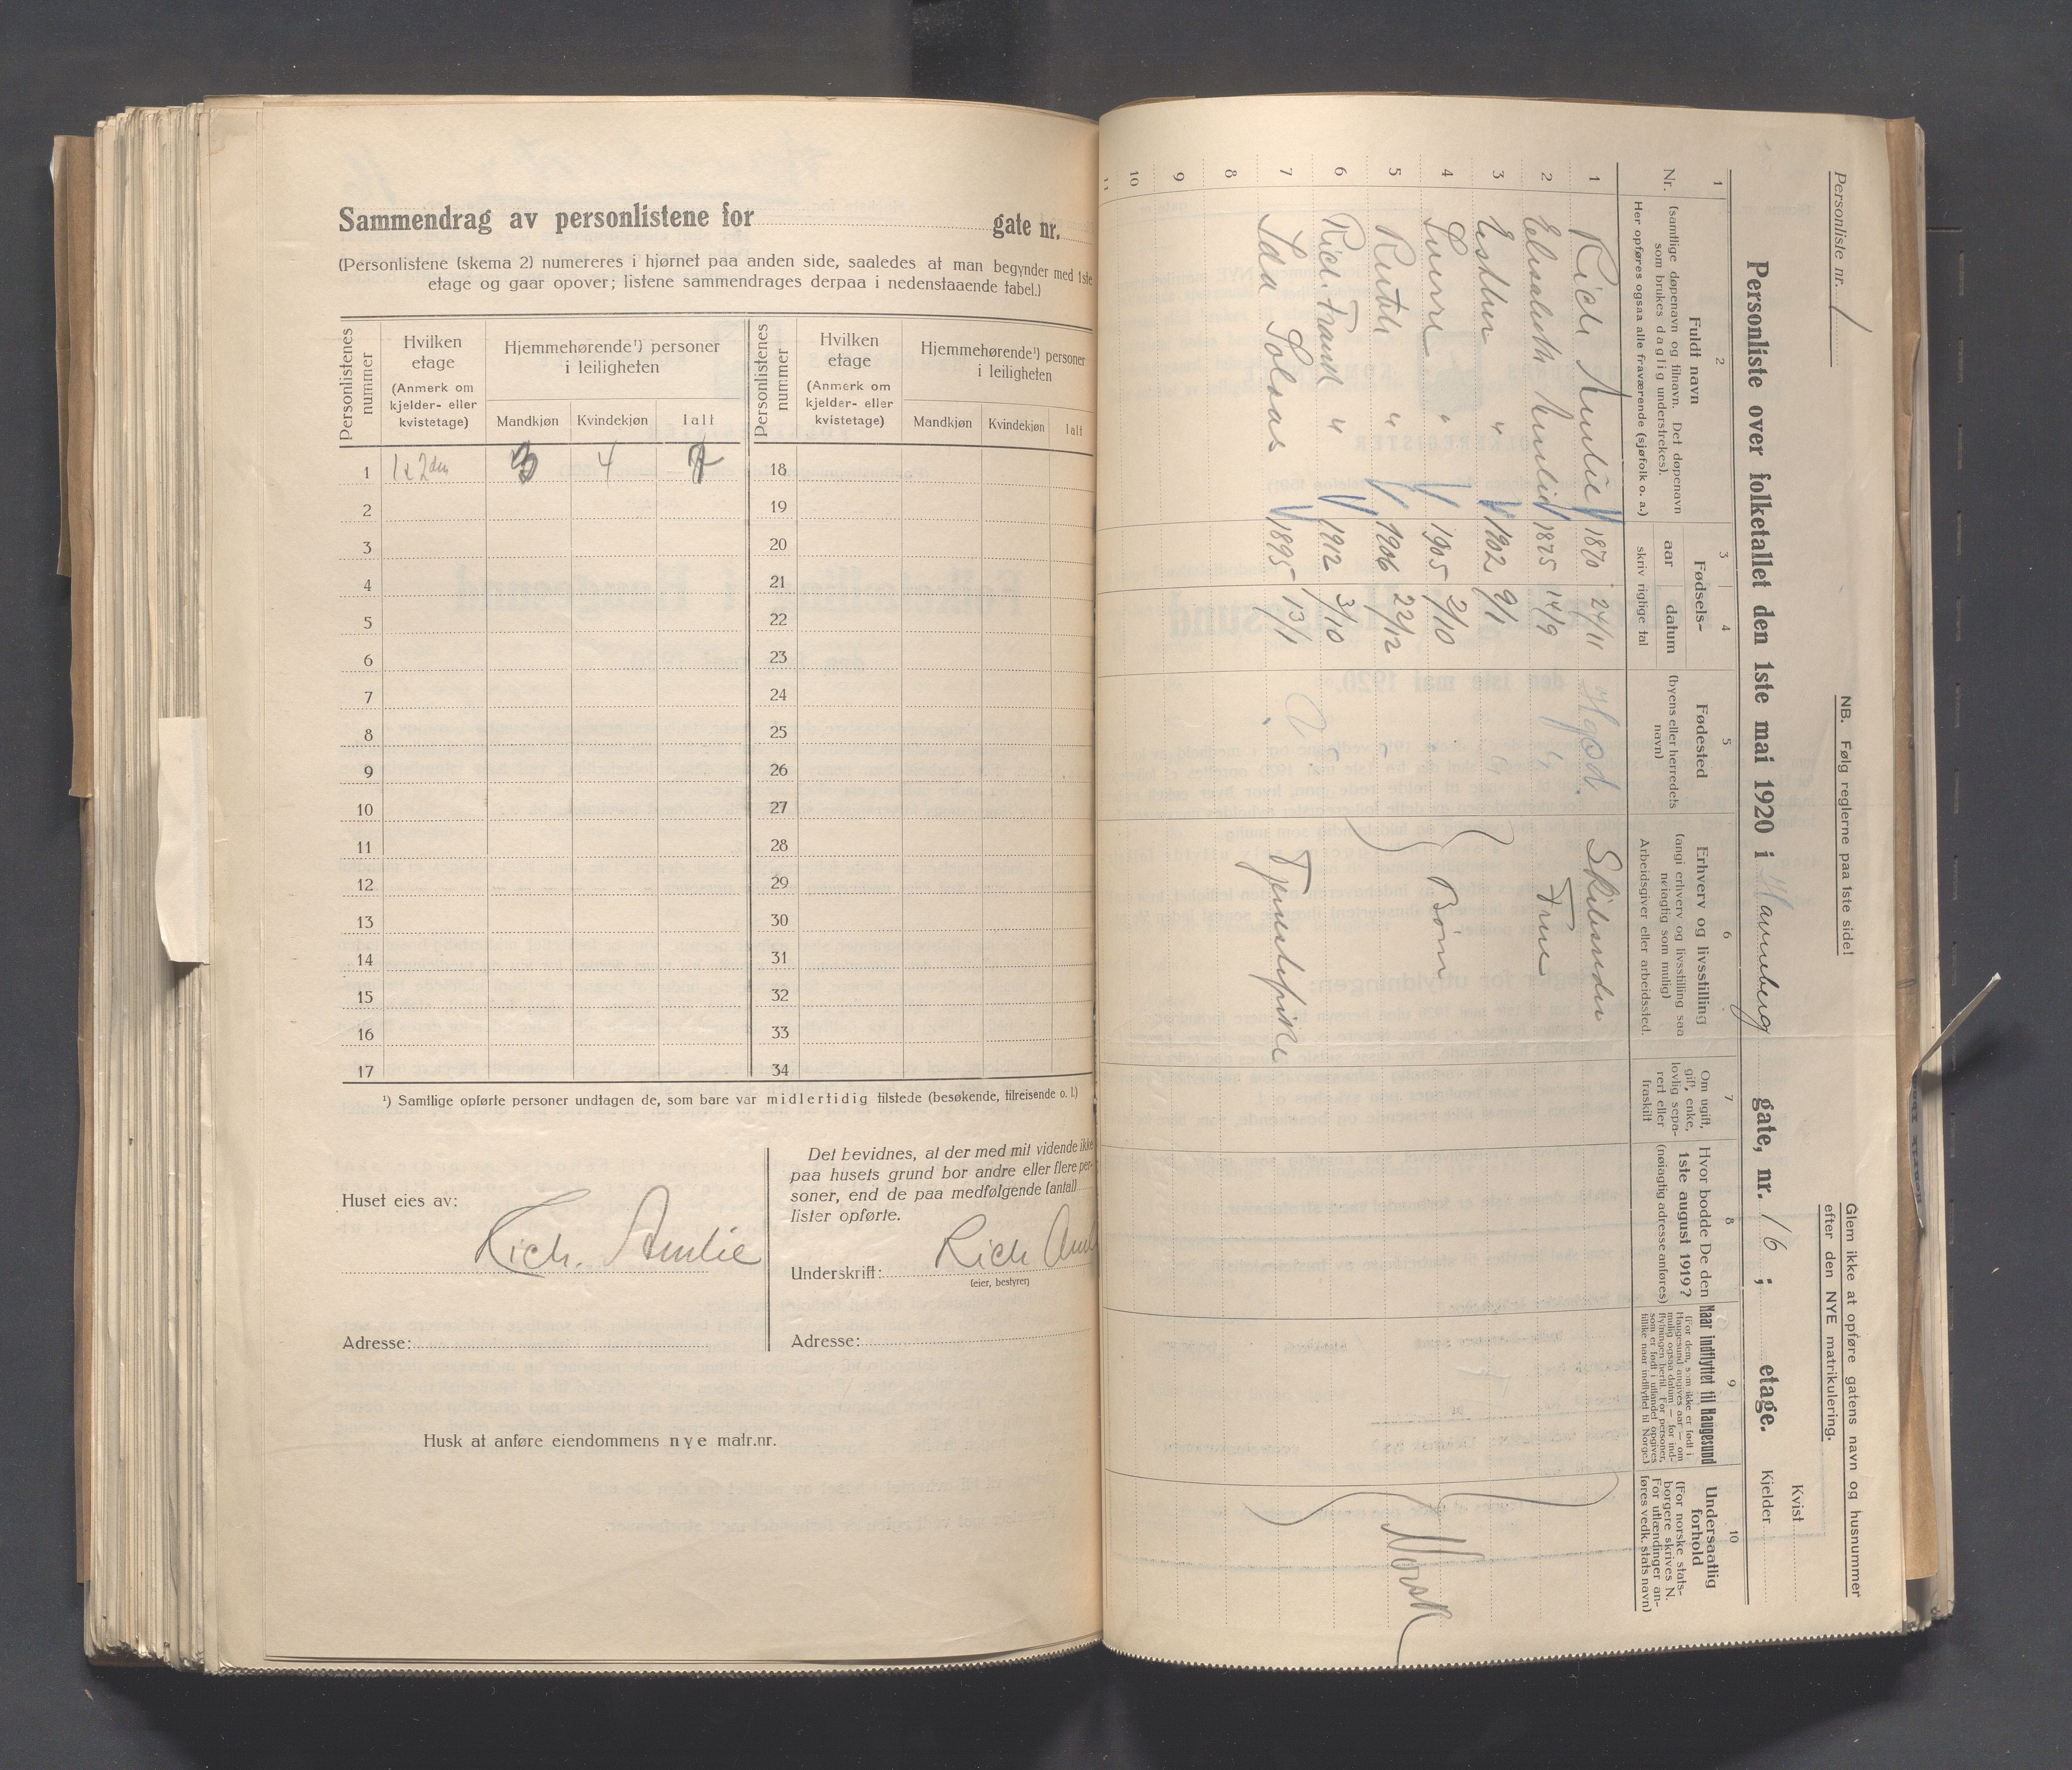 Sammendrag av personlistene for gate nr.
(Personlistene (skema 2) numereres i hjørnet paa anden side, saaledes at man begynder med 1ste
etage og gaar opover; listene sammendrages derpaa i nedenstaaende tabel.)
Personlistenes nummer
Hvilken etage
(Anmerk om kjelder- eller kvistetage)
Hjemmehørende¹) personer i leiligheten
Mandkjøn Kvindekjøn Ialt
Personlistenes nummer
Hvilken etage
(Anmerk om kjelder- eller kvistetage)
Hjemmehørende¹) personer i leiligheten
Mandkjøn Kvindekjøn Ialt
1 1 & 2den 3 4 7 18
2 19
3 20
4 21
5 22
6 23
7 24
8 25
9 26
10 27
11 28
12 29
13 30
14 31
15 32
16 33
17 34
¹) Samtlige opførte personer undtagen de, som bare var midlertidig tilstede (besøkende, tilreisende o. l.)
Huset eies av:
Rich. Amlie
Adresse:
Det bevidnes, at der med mit vidende ikke
paa husets grund bor andre eller flere per-
soner, end de paa medfølgende (antall
lister opførte.
Underskrift: Rich Aml
(eier, bestyrer)
Adresse:
Husk at anføre eiendommens nye matr.nr.
Personliste nr. 1
NB. Følg reglerne paa 1ste side!
Glem ikke at opføre gatens navn og husnummer
efter den NYE matrikulering.
Personliste over folketallet den 1ste mai 1920 i Havneberg gate, nr. 16 ; etage.
Kvist
Kjelder
1 2 3 4 5 6 7 8 9 10
Nr.
Fuldt navn
(samtlige døpenavn og tilnavn. Det døpenavn
som brukes daglig understrekes).
Her opføres ogsaa alle fraværende (sjøfolk o. a.)
Fødsels-
aar datum
skriv rigtige tal
Fødested
(byens eller herredets
navn)
Erhverv og livsstilling
(angi erhverv og livsstilling saa
nøiagtig som mulig)
Arbeidsgiver eller arbeidssted.
Om ugift,
gift, enke,
lovlig sepa-
rert eller
fraskilt
Hvor bodde De den
1ste august 1919?
(nøiagtig adresse anføres)
Naar indflyttet til Haugesund
(For dem, som ikke er født i
Haugesund angives aar — om
mulig ogsaa datum — for ind-
flytningen hertil. For personer,
som er født i utlandet opgives
tillike naar indflyttet til Norge.)
Undersaatlig
forhold
(For norske stats-
borgere skrives N.
For utlændinger an-
føres vedk. stats navn)
1 Rich Amlie 1870 24/11 Hgsd. Skibsreder
2 Elisabeth Amlie 1875 14/9 " Frue
3 Esther " 1902 9/1 "
4 Sverre " 1905 2/10 " Børn
5 Ruth " 1906 22/12 "
6 Rich. Frank " 1912 3/10 "
7 Ida Solaas 1895 13/1 Tjenestepike
Norsk
8
9
10
11